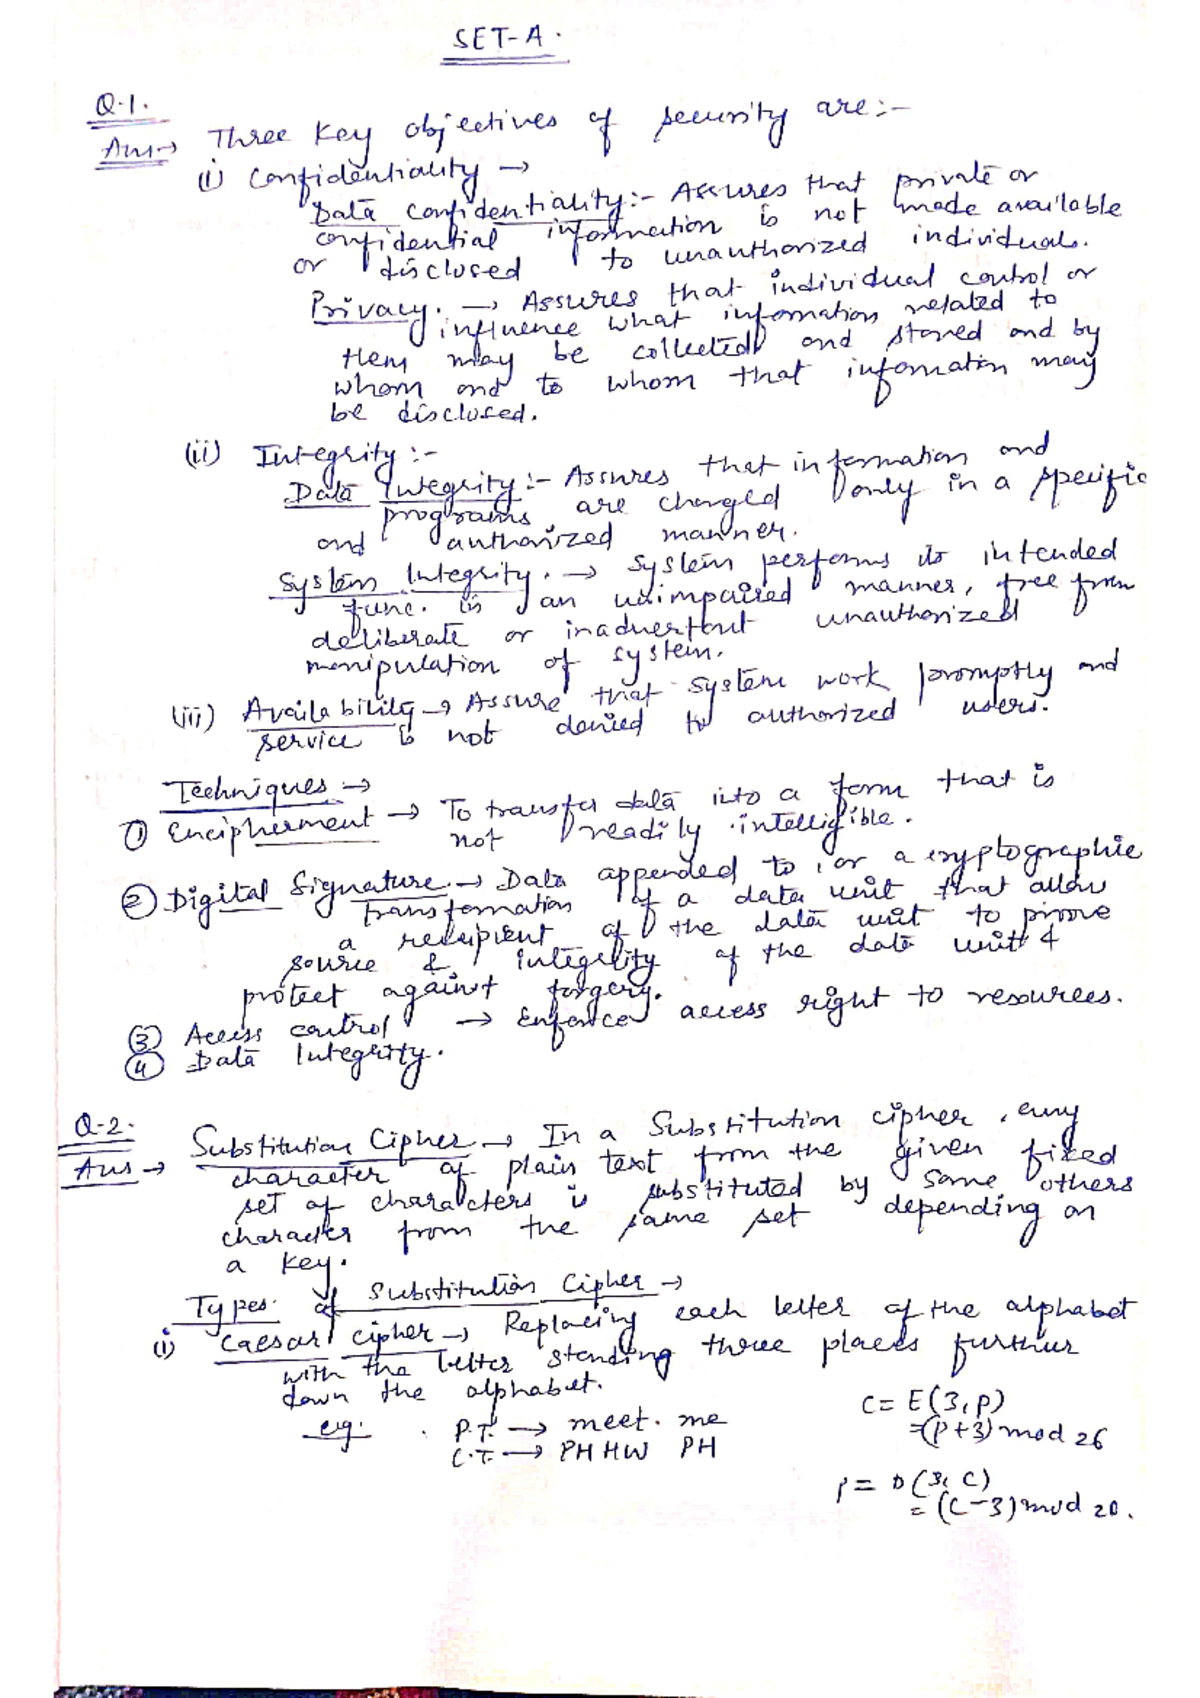 SET-A.
Q.1.
Ans→ Three Key objectives of security are:-
(i) Confidentiality →
Data confidentiality:- Assures that private or
confidential information is not made available
or disclosed to unauthorized individuals.
Privacy. → Assures that individual control or
influence what information related to
them may be collected and stored and by
whom and to whom that information may
be disclosed.
(ii) Integrity:-
Data Integrity:- Assures that information and
programs are changed only in a specific
and authorized manner.
System Integrity. → System performs its intended
func. in an unimpaired manner, free from
deliberate or inadvertent unauthorized
manipulation of system.
(iii) Availability → Assure that system work promptly and
service is not denied to authorized users.
Techniques →
① Encipherment → To transfer data into a form that is
not readily intelligible.
② Digital Signature. → Data appended to, or a cryptographic
transformation of a data unit that allow
a recipient of the data unit to prove
source & integrity of the data unit &
protect against forgery.
③ Access control → Enforce access right to resources.
④ Data Integrity.
Q-2.
Ans → Substitution Cipher → In a Substitution cipher, every
character of plain text from the given fixed
set of characters is substituted by some others
character from the same set depending on
a key.
Types of Substitution Cipher →
(i) Caesar cipher → Replacing each letter of the alphabet
with the letter standing three places further
down the alphabet.
eg. P.T. → meet. me
C.T. → PHHW PH
C = E(3, p)
=(p+3) mod 26
p = D(3, C)
= (C-3) mod 20.